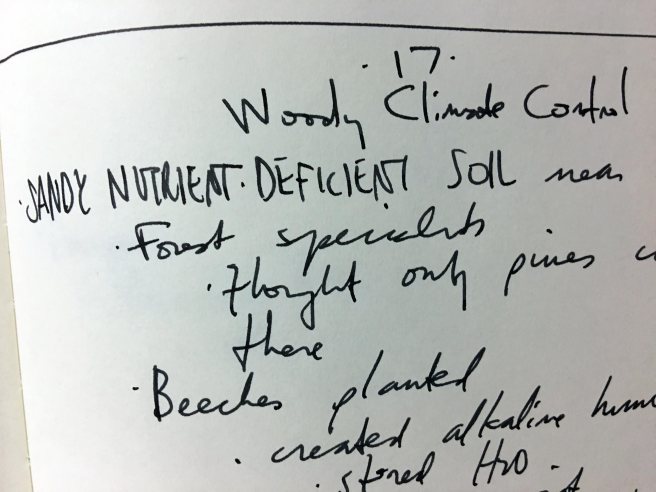 · 17 ·
Woody Climate Control
· SANDY NUTRIENT · DEFICIENT SOIL near
· Forest specialists
· thought only pines
there
· Beeches planted
· created alkaline
· stored H2O ·